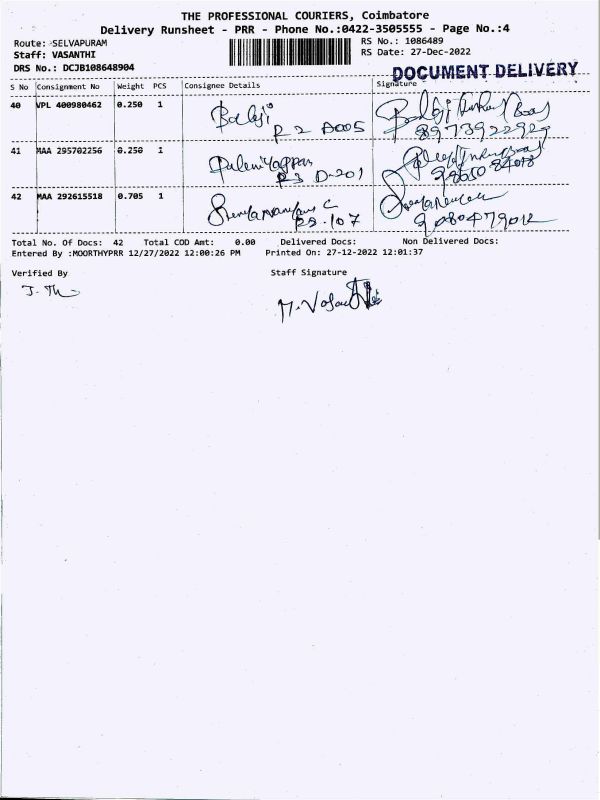 THE PROFESSIONAL COURIERS, Coimbatore
Delivery Runsheet - PRR - Phone No.:0422-3505555 - Page No.:4
Route: SELVAPURAM
Staff: VASANTHI
DRS No.: DCJB108648904
RS No.: 1086489
RS Date: 27-Dec-2022
DOCUMENT DELIVERY
S No Consignment No Weight PCS Consignee Details Signature
40 VPL 400980462 0.250 1 Balaji
R2 A005
8973922929
41 MAA 295702256 0.250 1 Palaniyappan
R3 D-201
42 MAA 292615518 0.705 1
R2-107
9080479012
Total No. Of Docs: 42 Total COD Amt: 0.00 Delivered Docs: Non Delivered Docs:
Entered By :MOORTHYPRR 12/27/2022 12:00:26 PM Printed On: 27-12-2022 12:01:37
Verified By Staff Signature